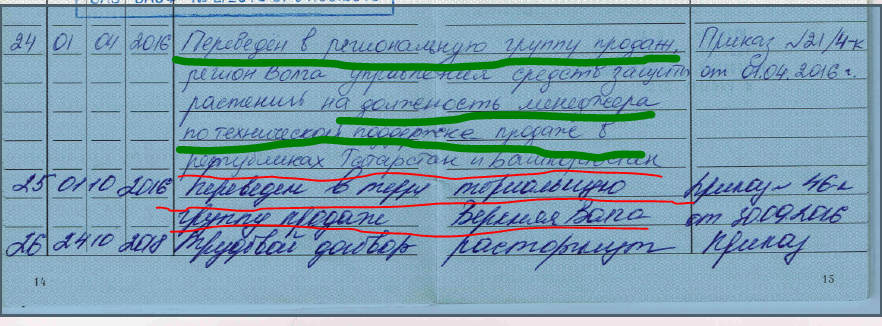 24 01 04 2016 Переведен в региональную группу продаж, Приказ №21/4-к
регион Волга управления средств защиты от 01.04.2016 г.
растений на должность менеджера
по технической поддержке продаж в
республиках Татарстан и Башкортостан
25 01 10 2016 Переведен в территориальную приказ 46-к
группу продаж Верхняя Волга от 30092016
26 24 10 2018 Трудовой договор расторгнут Приказ
14 15